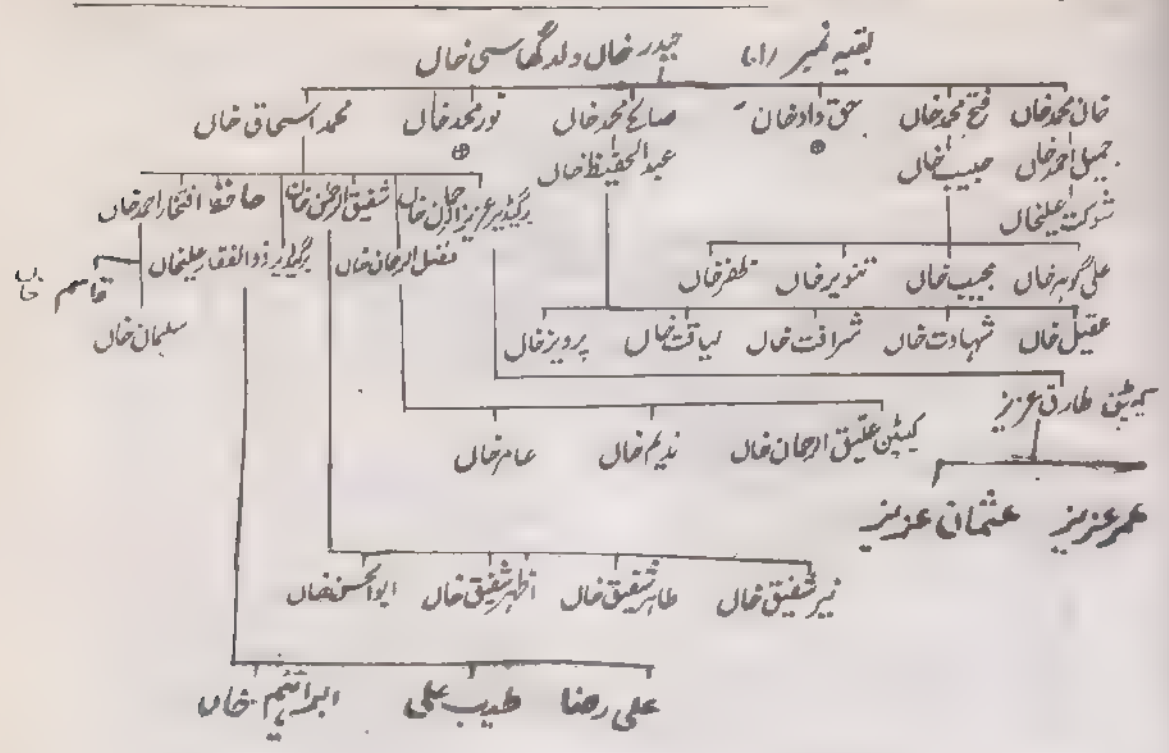 بقیہ نمبر (۱) حیدر خاں ولد گھاسی خاں
خان محمد خاں فتح محمد خاں حق داد خان صالح محمد خاں نور محمد خاں محمد اسحاق خاں
جمیل احمد خاں حبیب خاں عبد الحفیظ خاں
شوکت علیخاں
بریگیڈیر عزیز الرحمان خاں شفیق الرحمٰن خاں حافظ افتخار احمد خاں
فضل الرحمان خاں بریگیڈیر ذوالفقار علیخاں قاسم خاں
سلیمان خاں
علی گوہر خاں مجیب خاں تنویر خاں ظفر خاں
عقیل خاں شہادت خاں شرافت خاں لیاقت خاں پرویز خاں
کیپٹن طارق عزیز
کیپٹن عتیق الرحمان خاں ندیم خاں عامر خاں
عمر عزیز عثمان عزیز
نیر شفیق خاں طاہر شفیق خاں اظہر شفیق خاں ابوالحسن خاں
علی رضا طیب علی ابراہیم خاں